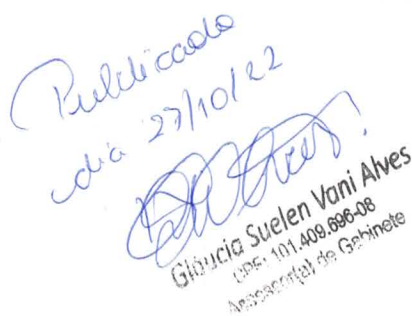 Publicado
dia 27/10/22
Gláucia Suelen Vani Alves
CPF: 101.409.696-08
Assessor(a) de Gabinete